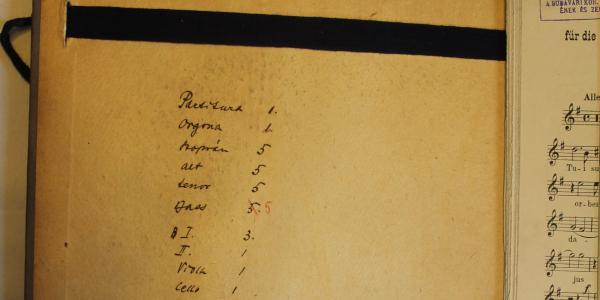 Partitura 1.
Orgona 1.
Szoprán 5
alt 5
tenor 5
Bass 5. 5
I. 3.
II. 1
Viola 1
Cello 1
A BUDAVÁRI KOR.
ÉNEK ÉS ZE
für die
Alle
Tu-i su
or-be
da-
jus